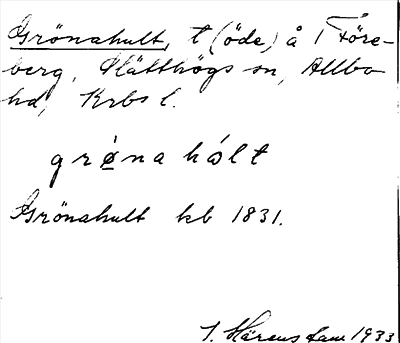 Grönahult, t (öde) å Före-
berg, Slätthögs sn, Allbo
hd, Krbs l.
grønahòlt
Grönahult kb 1831.
I. Härenstam 1933